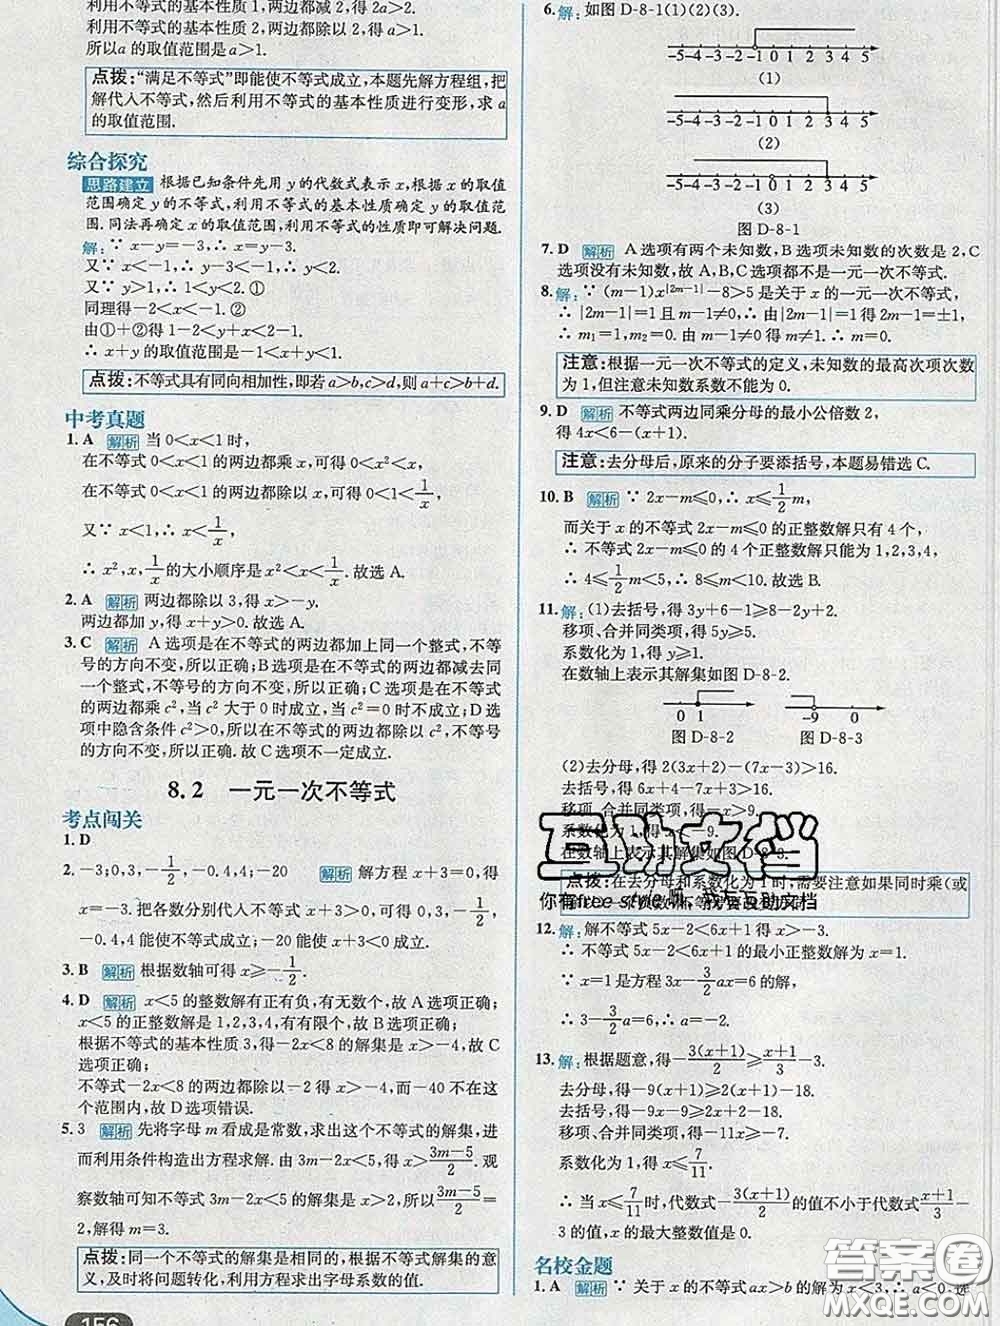 利用不等式的基本性质1,两边都减2,得2a>2.
利用不等式的基本性质2,两边都除以2,得a>1.
所以a的取值范围是a>1.
点拨:“满足不等式”即能使不等式成立,本题先解方程组,把
解代人不等式,然后利用不等式的基本性质进行变形,求a
的取值范围.
综合探究
思路建立 根据已知条件先用y的代数式表示x,根据x的取值
范围确定y的不等式,利用不等式的基本性质确定y的取值范
围.同法再确定x的取值范围,利用不等式的性质即可解决问题.
解:∵ x-y=-3,∴ x=y-3.
又∵ x<-1,∴ y-3<-1,∴ y<2.
又∵ y>1,∴ 1<y<2.①
同理得-2<x<-1.②
由①+②得1-2<y+x<2-1.
∴ x+y的取值范围是-1<x+y<1.
点拨:不等式具有同向相加性,即若a>b,c>d,则a+c>b+d.
中考真题
1. A 解析 当0<x<1时,
在不等式0<x<1的两边都乘x,可得0<x²<x.
在不等式0<x<1的两边都除以x,可得0<1<1/x,
又∵ x<1,∴ x<1/x.
∴ x²,x,1/x的大小顺序是x²<x<1/x.故选A.
2. A 解析 两边都除以3,得x>-y.
两边都加y,得x+y>0.故选A.
3. C 解析 A选项是在不等式的两边都加上同一个整式,不等
号的方向不变,所以正确;B选项是在不等式的两边都减去同
一个整式,不等号的方向不变,所以正确;C选项是在不等式
的两边都乘c²,当c²大于0时成立,当c²=0时不成立;D选
项中隐含条件c²>0,所以在不等式的两边都除以c²,不等号
的方向不变,所以正确.故C选项不一定成立.
8.2 一元一次不等式
考点闯关
1. D
2. -3;0,3,-1/2,-0.4,4;-20 解析 解方程x+3=0,得
x=-3.把各数分别代人不等式x+3>0,可得0,3,-1/2,
-0.4,4能使不等式成立;-20能使x+3<0成立.
3. B 解析 根据数轴可得x≥-1/2.
4. D 解析 x<5的整数解有正有负,有无数个,故A选项正确;
x<5的正整数解是1,2,3,4,有有限个,故B选项正确;
根据不等式的基本性质3,得-2x<8的解集是x>-4,故C
选项正确;
不等式-2x<8的两边都除以-2得x>-4,而-40不在这
个范围内,故D选项错误.
5. 3 解析 先将字母m看成是常数,求出这个不等式的解集,进
而利用条件构造出方程求解.由3m-2x<5,得x>(3m-5)/2.观
察数轴可知不等式3m-2x<5的解集是x>2,所以(3m-5)/2=
2,解得m=3.
点拨:同一个不等式的解集是相同的,根据不等式解集的意
义,及时将问题转化,利用方程求出字母系数的值.
156
6. 解:如图D-8-1(1)(2)(3).
-5-4-3-2-1 0 1 2 3 4 5
(1)
-5-4-3-2-1 0 1 2 3 4 5
(2)
-5-4-3-2-1 0 1 2 3 4 5
(3)
图D-8-1
7. D 解析 A选项有两个未知数,B选项未知数的次数是2,C
选项没有未知数,故A,B,C选项都不是一元一次不等式.
8. 解:∵ (m-1)x^|2m-1|-8>5是关于x的一元一次不等式,
∴ |2m-1|=1且m-1≠0,∴ 由|2m-1|=1得2m-1=±1,
∴ m₁=1,m₂=0.由m-1≠0得m≠1,∴ m=0.
注意:根据一元一次不等式的定义,未知数的最高次项次数
为1,但注意未知数系数不能为0.
9. D 解析 不等式两边同乘分母的最小公倍数2,
得4x<6-(x+1).
注意:去分母后,原来的分子要添括号,本题易错选C.
10. B 解析 ∵ 2x-m≤0,∴ x≤1/2m,
而关于x的不等式2x-m≤0的正整数解只有4个,
∴ 不等式2x-m≤0的4个正整数解只能为1,2,3,4,
∴ 4≤1/2m<5,∴ 8≤m<10.故选B.
11. 解:(1)去括号,得3y+6-1≥8-2y+2.
移项、合并同类项,得5y≥5.
系数化为1,得y≥1.
在数轴上表示其解集如图D-8-2.
0 1
图D-8-2
-9 0
图D-8-3
(2)去分母,得2(3x+2)-(7x-3)>16.
去括号,得6x+4-7x+3>16.
移项、合并同类项,得-x>9.
系数化为1,得x<-9.
在数轴上表示其解集如图D-8-3.
点拨:在去分母和系数化为1时,需要注意如果同时乘(或
互助文档
你有free style啊,我有互助文档
12. 解:解不等式5x-2<6x+1得x>-3.
∴ 不等式5x-2<6x+1的最小正整数解为x=1.
∵ x=1是方程3x-3/2ax=6的解,
∴ 3-3/2a=6,∴ a=-2.
13. 解:根据题意,得-3(x+1)/2≥(x+1)/3-3.
去分母,得-9(x+1)≥2(x+1)-18.
去括号,得-9x-9≥2x+2-18.
移项、合并同类项,得-11x≥-7.
系数化为1,得x≤7/11.
∴ 当x≤7/11时,代数式-3(x+1)/2的值不小于代数式(x+1)/3-
3的值,x的最大整数值是0.
名校金题
1. A 解析 ∵ 关于x的不等式ax>b的解为x<3,∴ a<0.选
答案圈
MXQE.COM